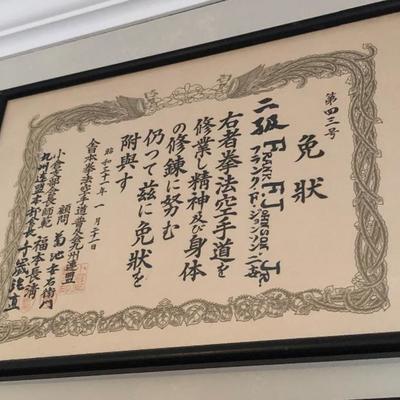 第四三号
免狀
二級 FRANK F. JOHNSON, JR.
フランク・F・ジョンソン 二世
右者拳法空手道を
修業し精神及び身体
の修錬に努む
仍つて茲に免狀を
附與す
昭和三十一年一月二十一日
全日本拳法空手道普及会九州連盟
顧問 菊池幸右衛門
小倉支部長師範 福本長清
九州連盟本部長